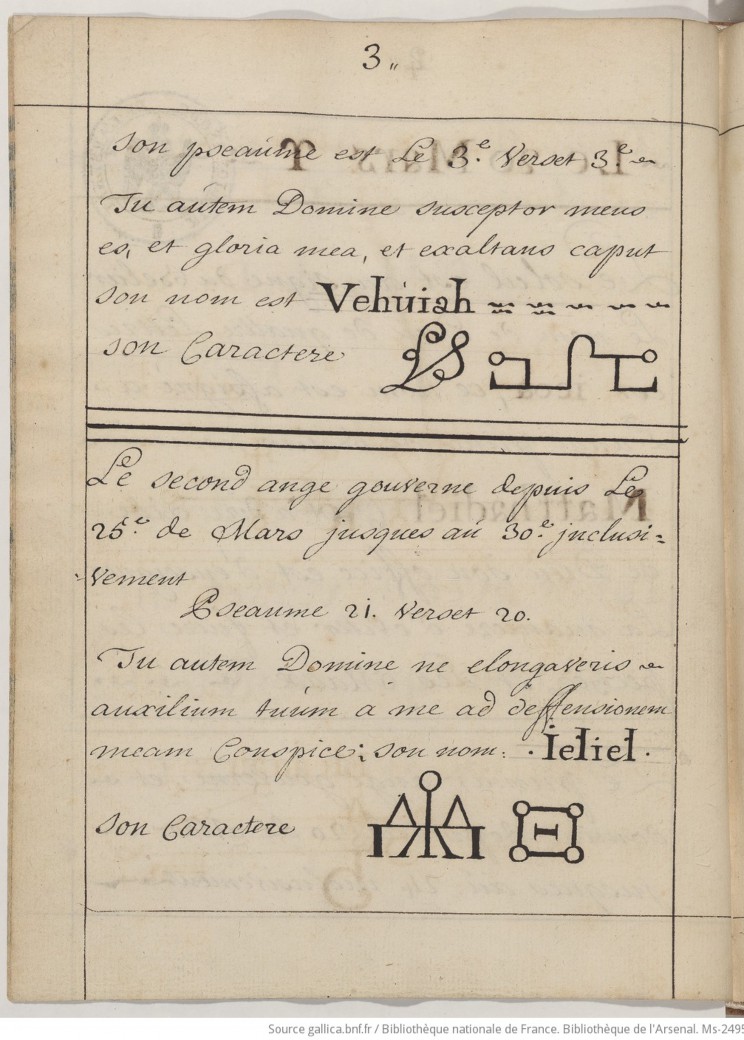 3„
son pseaúme est Le 3.e Verset 3.e
Tu aútem Domine susceptor meus
es, et gloria mea, et exaltans caput
son nom est Vehúiah
son Caractere
Le second ange gouverne depuis Le
25.e de Mars jusques aú 30.e jnclusi=
vement
Pseaume 21. Verset 20.
Tu autem Domine ne elongaveris
auxilium túúm a me ad deffensionem
meam Conspice; son nom: · Ieliel ·
son Caractere
Source gallica.bnf.fr / Bibliothèque nationale de France. Bibliothèque de l'Arsenal. Ms-2495